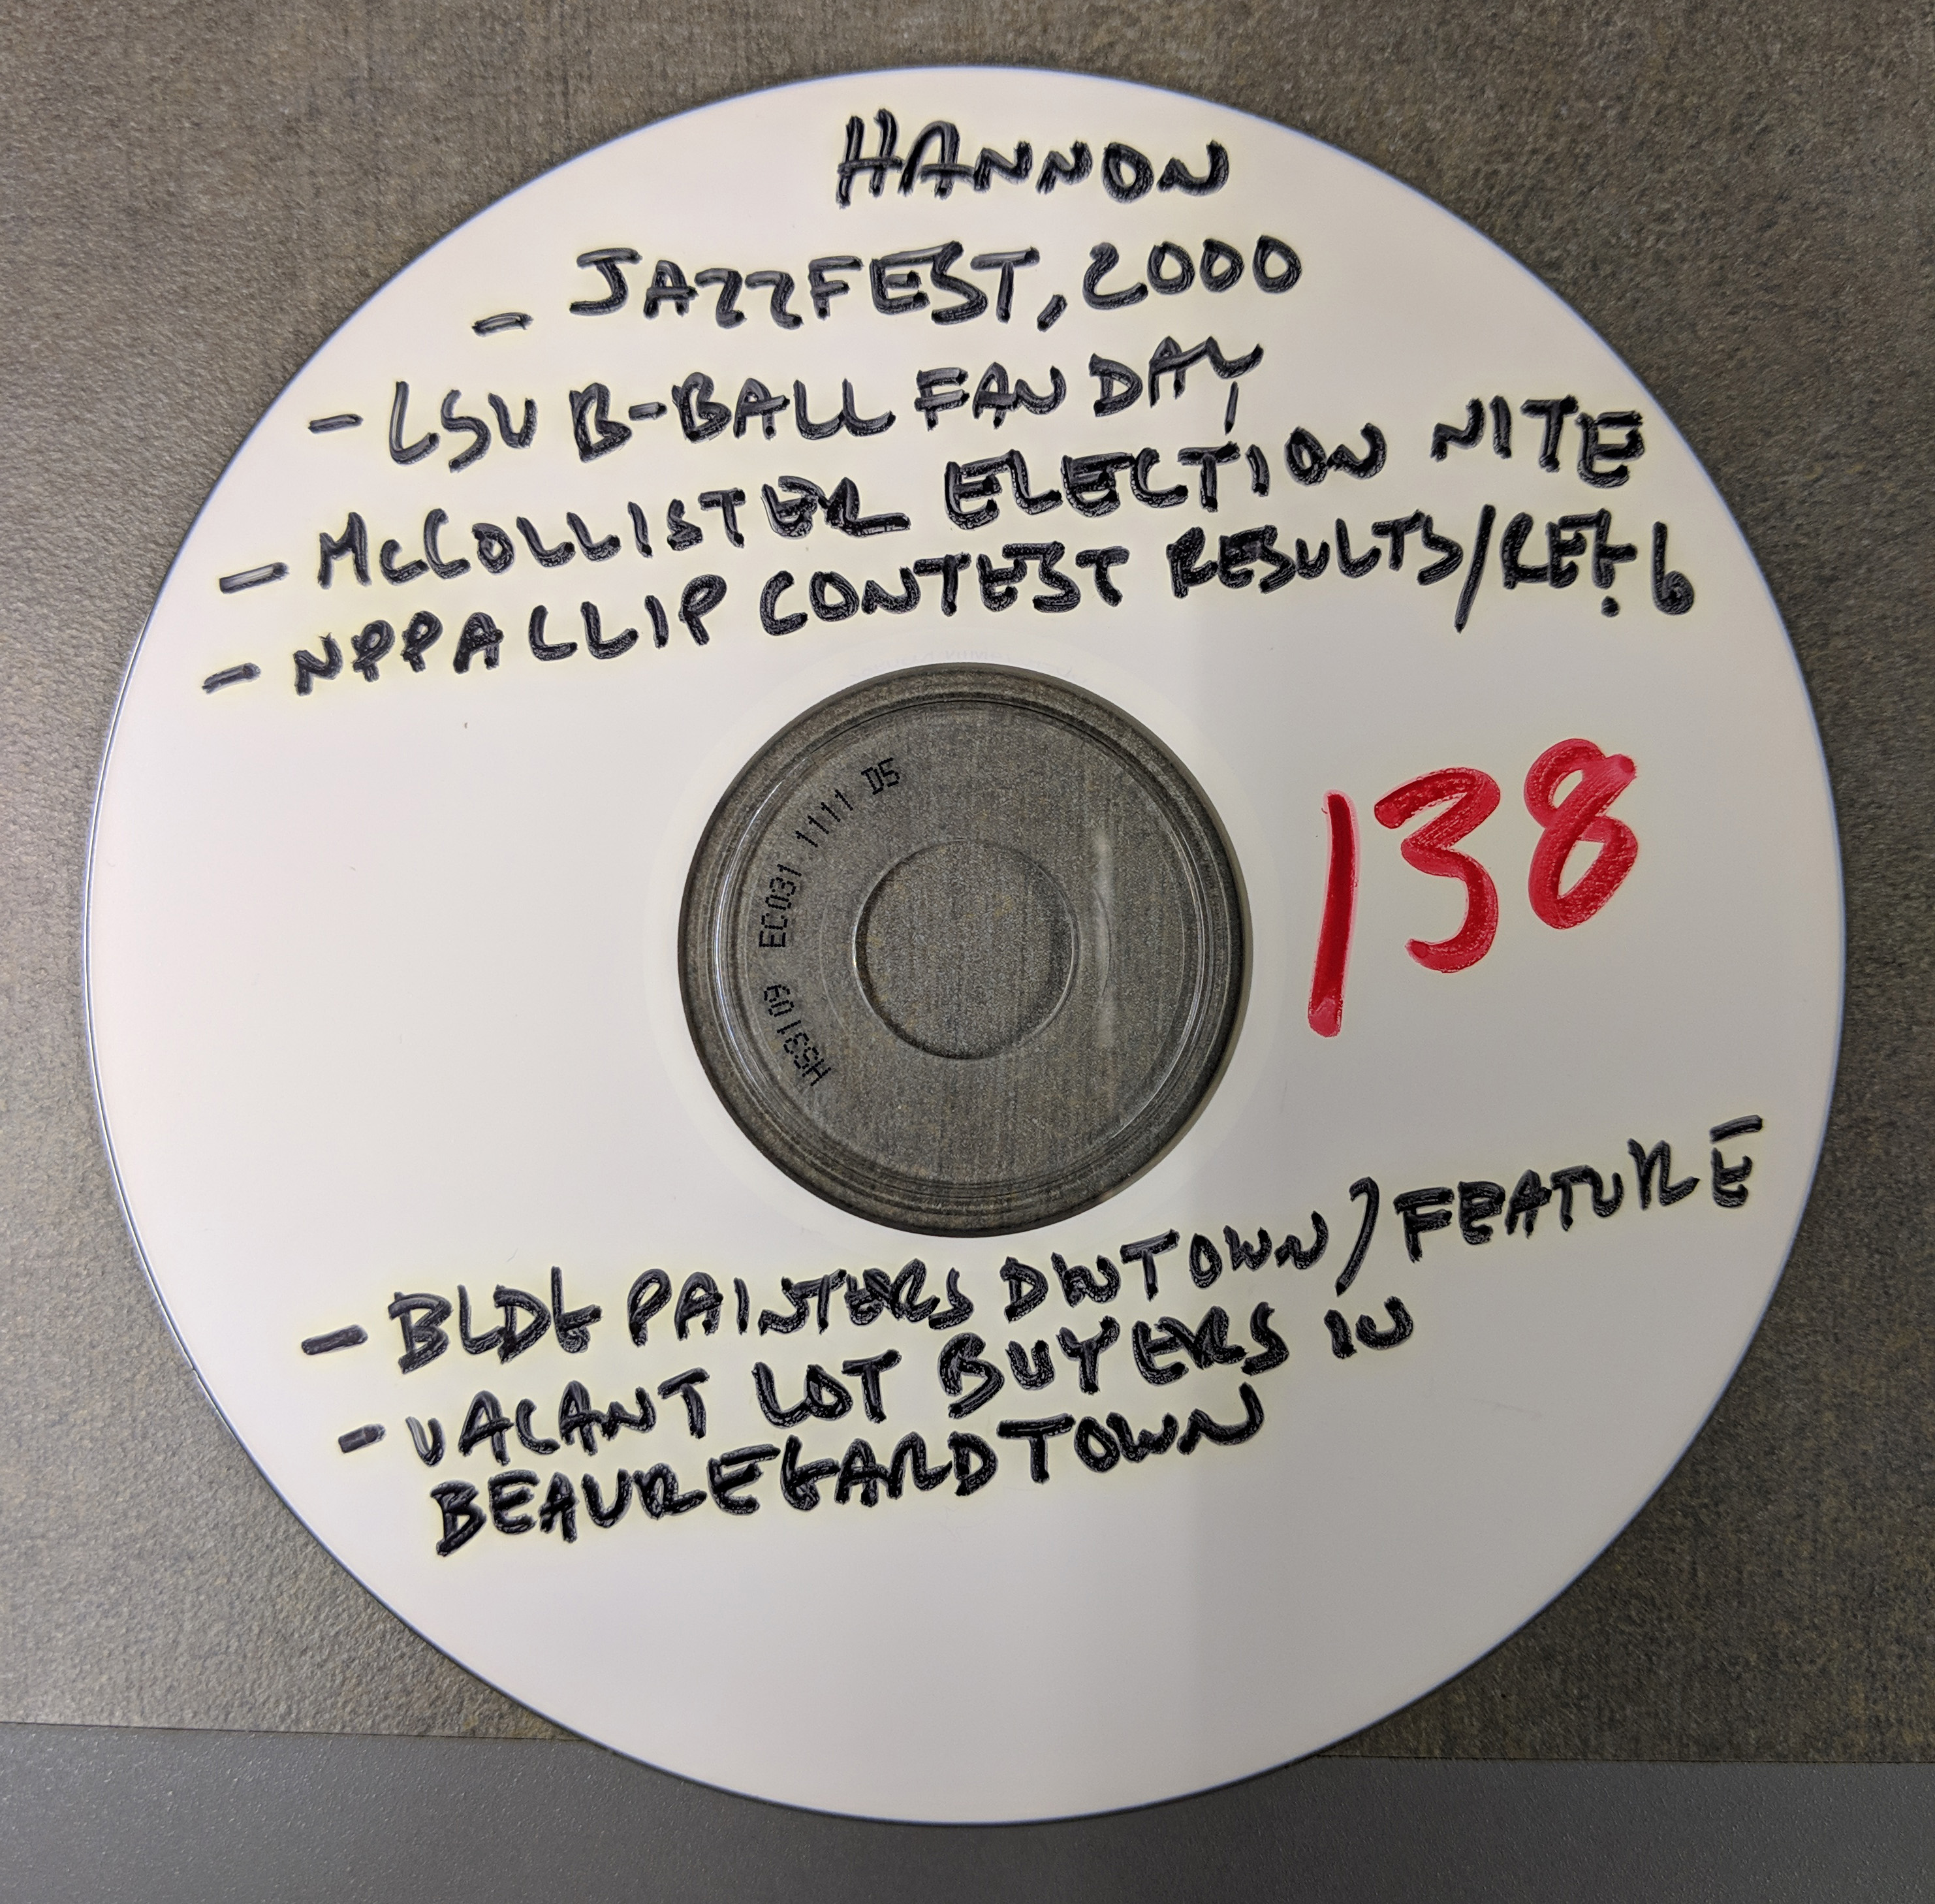 HANNON
- JAZZFEST, 2000
- LSU B-BALL FAN DAY
- McCOLLISTER ELECTION NITE
- NPPA CLIP CONTEST RESULTS/REG. 6
138
H53109 EC031 1111 D5
- BLDG PAINTERS DWTOWN/FEATURE
- VACANT LOT BUYERS IN
BEAUREGARD TOWN